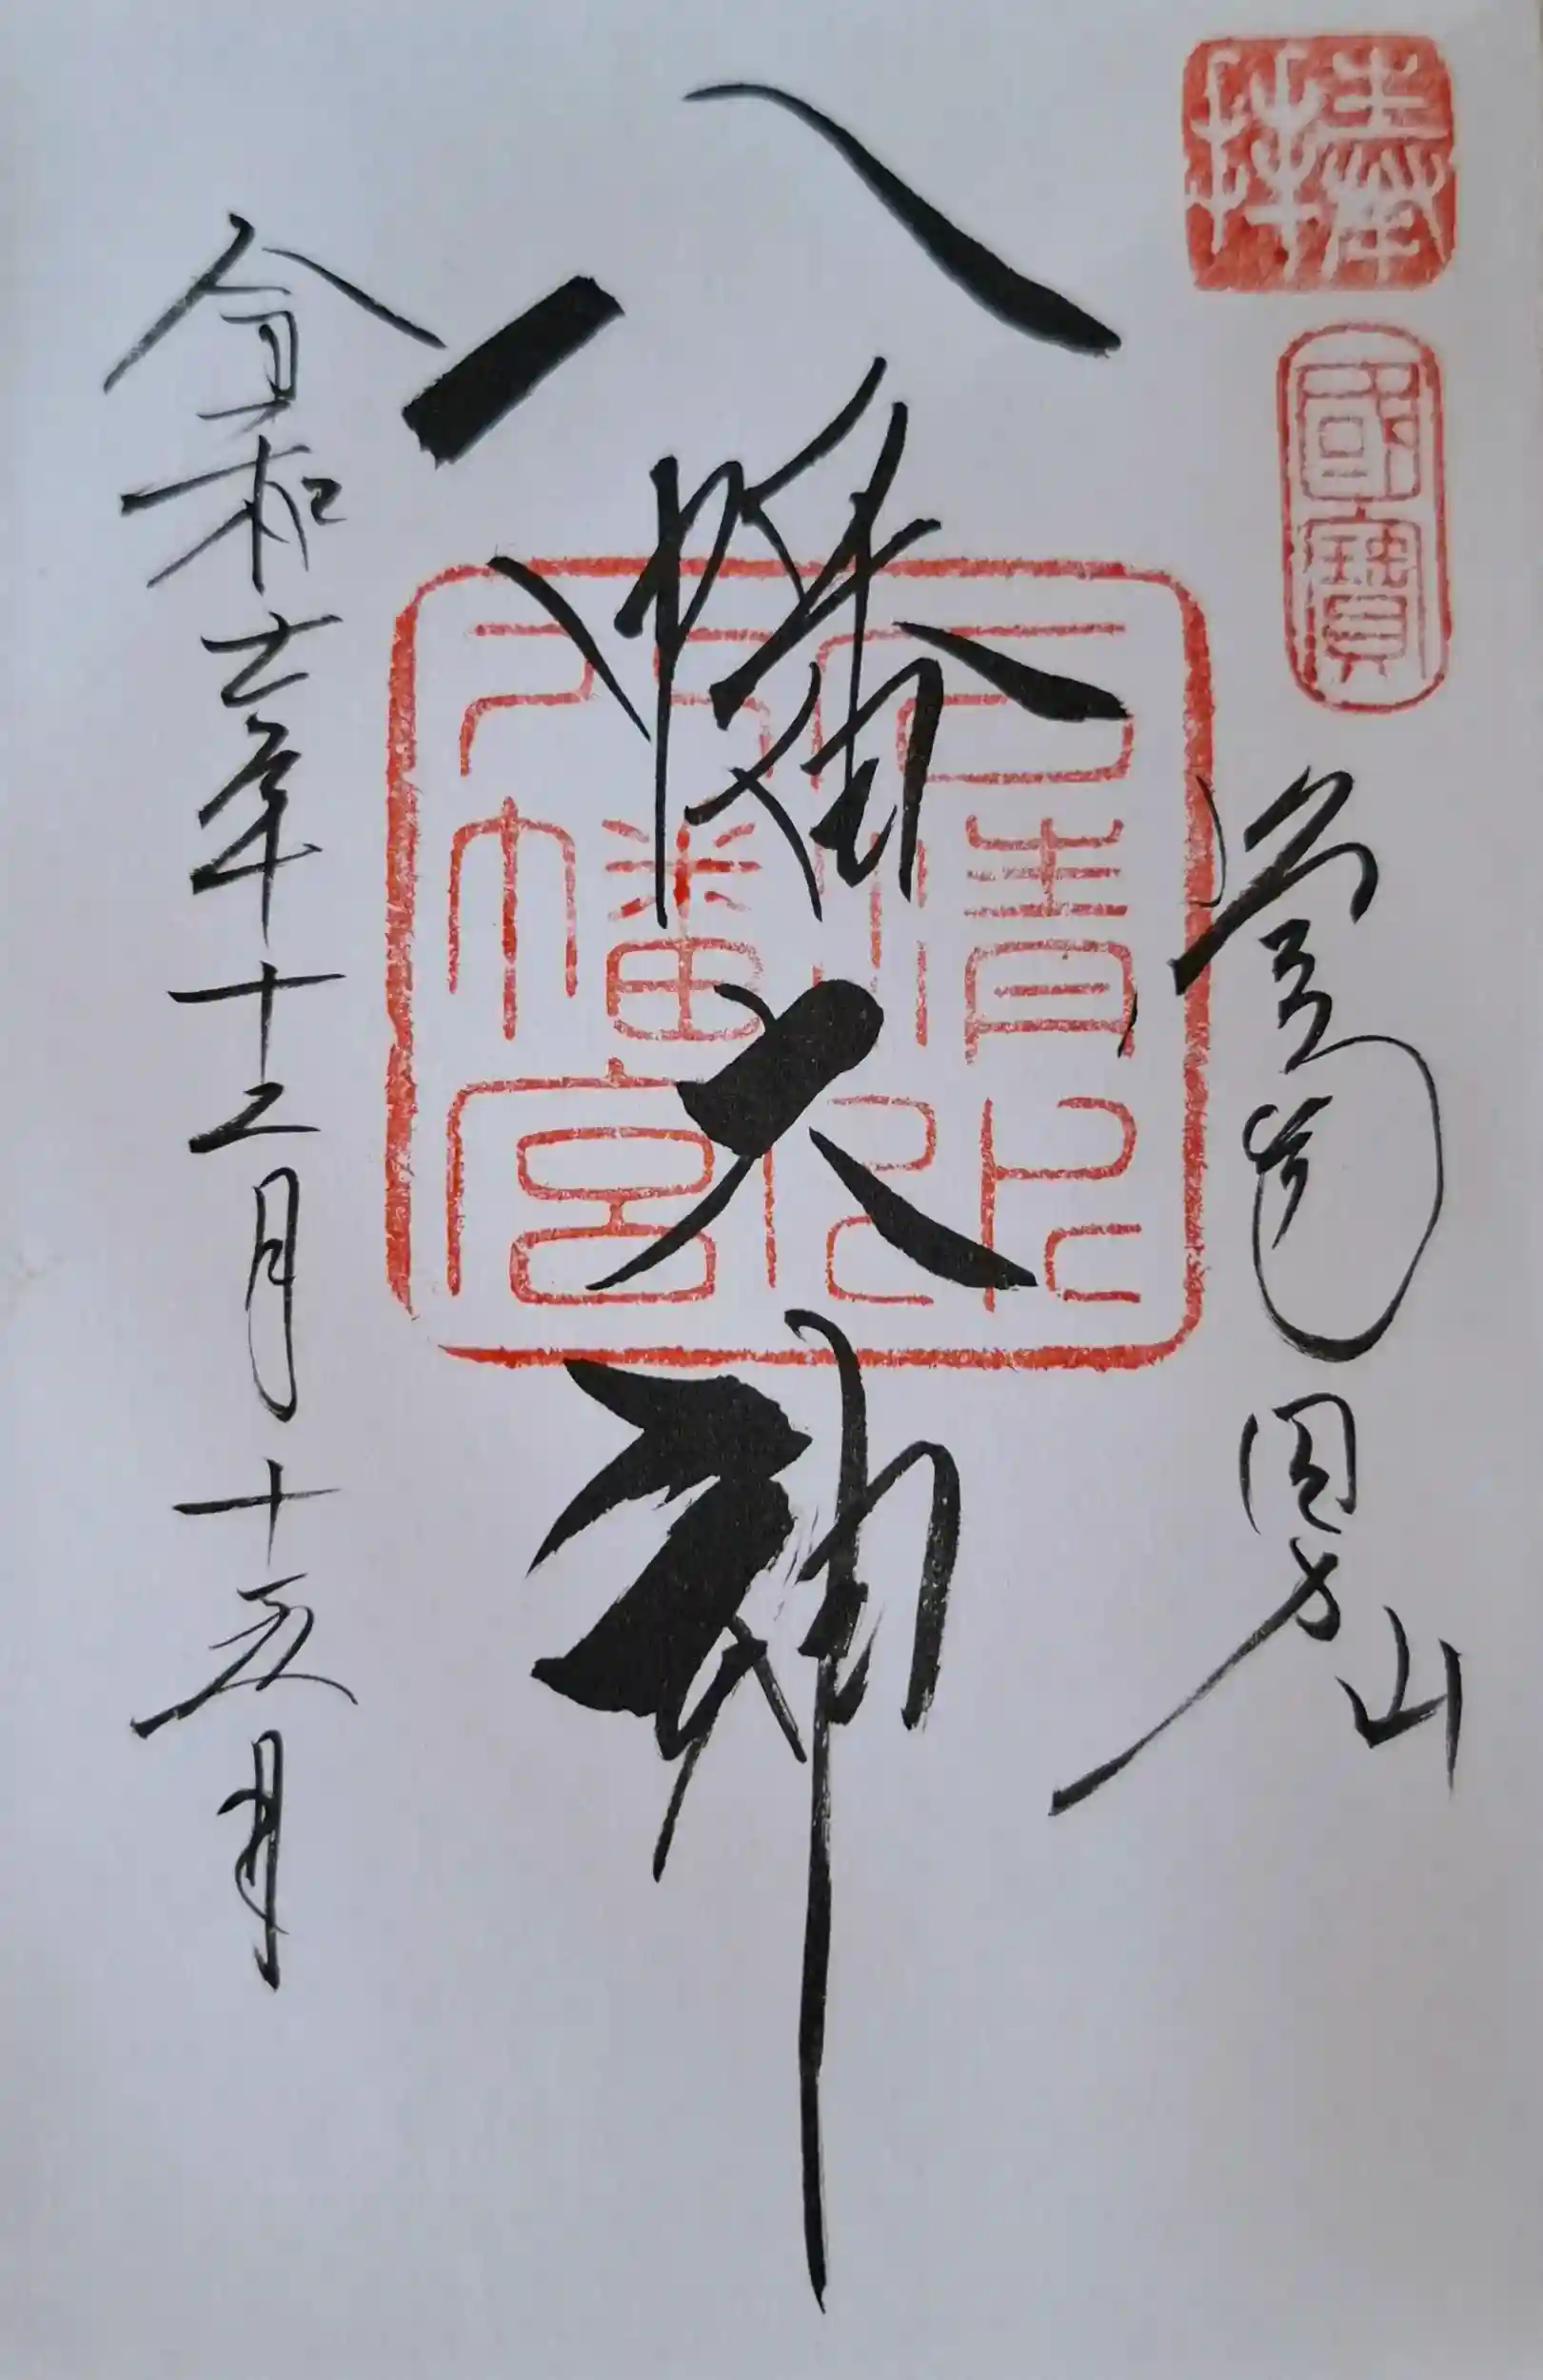 奉拝
國寶
男山
八幡大神
石清水
八幡宮
令和七年十二月十五日